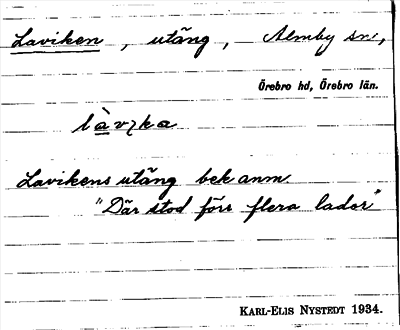 Laviken, utäng, Almby sn,
Örebro hd, Örebro län.
làvɩka
Lavikens utäng bek anm.
"Där stod förr flera lador"
KARL-ELIS NYSTEDT 1934.